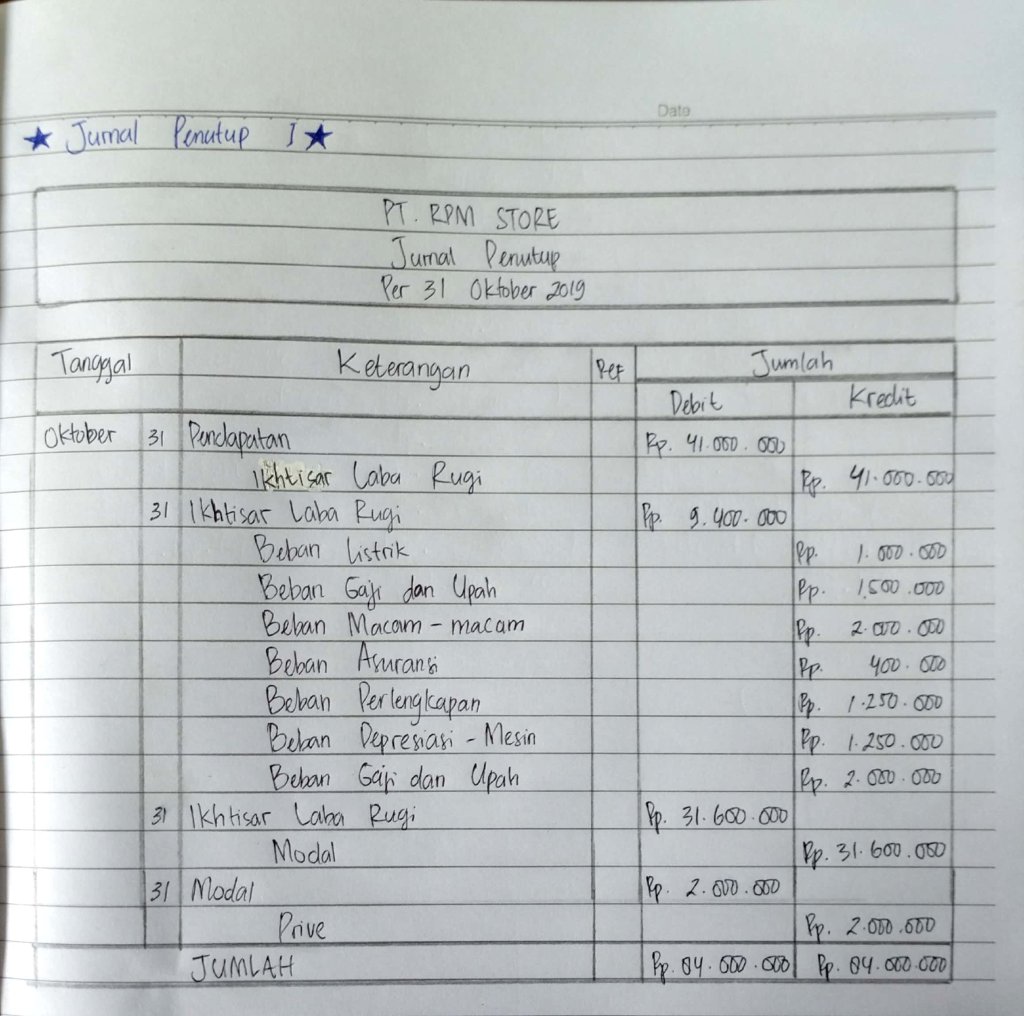 Date
★ Jurnal Penutup I ★
PT. RPM STORE
Jurnal Penutup
Per 31 Oktober 2019
Tanggal Keterangan Ref Jumlah
Debit Kredit
Oktober 31 Pendapatan Rp. 41.000.000
Ikhtisar Laba Rugi Rp. 41.000.000
31 Ikhtisar Laba Rugi Rp. 9.400.000
Beban Listrik Rp. 1.000.000
Beban Gaji dan Upah Rp. 1.500.000
Beban Macam-macam Rp. 2.000.000
Beban Asuransi Rp. 400.000
Beban Perlengkapan Rp. 1.250.000
Beban Depresiasi - Mesin Rp. 1.250.000
Beban Gaji dan Upah Rp. 2.000.000
31 Ikhtisar Laba Rugi Rp. 31.600.000
Modal Rp. 31.600.000
31 Modal Rp. 2.000.000
Prive Rp. 2.000.000
JUMLAH Rp. 84.000.000 Rp. 84.000.000